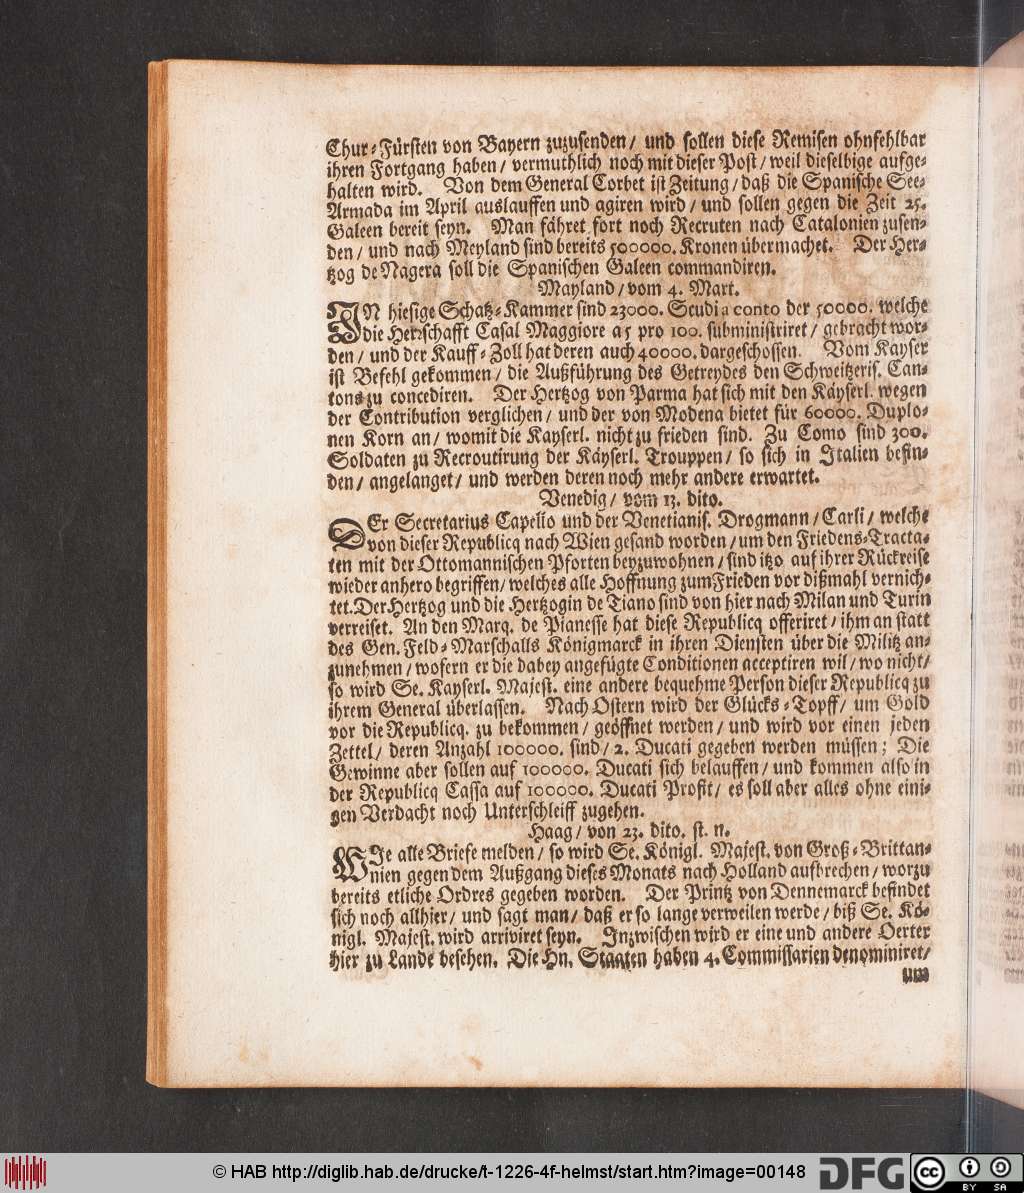 Chur-Fürsten von Bayern zuzusenden/ und sollen diese Remisen ohnfehlbar
ihren Fortgang haben/ vermuthlich noch mit dieser Post/ weil dieselbige aufge-
halten wird. Von dem General Corbet ist Zeitung/ daß die Spanische See-
Armada im April auslauffen und agiren wird/ und sollen gegen die Zeit 25.
Galeen bereit seyn. Man fähret fort noch Recruten nach Catalonien zusen-
den/ und nach Meyland sind bereits 500000. Kronen übermachet. Der Her-
tzog de Nagera soll die Spanischen Galeen commandiren.
Mayland/ vom 4. Mart.
IN hiesige Schatz-Kammer sind 23000. Scudi a conto der 50000. welche
die Herrschafft Casal Maggiore a 5 pro 100. subministriret/ gebracht wor-
den/ und der Kauff-Zoll hat deren auch 40000. dargeschossen. Vom Kayser
ist Befehl gekommen/ die Außführung des Getreydes den Schweitzeris. Can-
tons zu concediren. Der Hertzog von Parma hat sich mit den Käyserl. wegen
der Contribution verglichen/ und der von Modena bietet für 60000. Duplo-
nen Korn an/ womit die Kayserl. nicht zu frieden sind. Zu Como sind 300.
Soldaten zu Recroutirung der Käyserl. Trouppen/ so sich in Italien befin-
den/ angelanget/ und werden deren noch mehr andere erwartet.
Venedig/ vom 13. dito.
DEr Secretarius Capello und der Venetianis. Drogmann/ Carli/ welche
von dieser Republicq nach Wien gesand worden/ um den Friedens-Tracta-
ten mit der Ottomannischen Pforten beyzuwohnen/ sind itzo auf ihrer Rückreise
wieder anhero begriffen/ welches alle Hoffnung zum Frieden vor dißmahl vernich-
tet. Der Hertzog und die Hertzogin de Tiano sind von hier nach Milan und Turin
verreiset. An den Marq. de Pianesse hat diese Republicq offeriret/ ihm an statt
des Gen. Feld-Marschalls Königmarck in ihren Diensten über die Militz an-
zunehmen/ wofern er die dabey angefügte Conditionen acceptiren wil/ wo nicht/
so wird Se. Kayserl. Majest. eine andere bequehme Person dieser Republicq zu
ihrem General überlassen. Nach Ostern wird der Glücks-Topff/ um Gold
vor die Republicq. zu bekommen/ geöffnet werden/ und wird vor einen jeden
Zettel/ deren Anzahl 100000. sind/ 2. Ducati gegeben werden müssen; Die
Gewinne aber sollen auf 100000. Ducati sich belauffen/ und kommen also in
der Republicq Cassa auf 100000. Ducati Profit/ es soll aber alles ohne eini-
gen Verdacht noch Unterschleiff zugehen.
Haag/ von 23. dito. st. n.
WIe alle Briefe melden/ so wird Se. Königl. Majest. von Groß-Brittan-
nien gegen dem Außgang dieses Monats nach Holland aufbrechen/ worzu
bereits etliche Ordres gegeben worden. Der Printz von Dennemarck befindet
sich noch allhier/ und sagt man/ daß er so lange verweilen werde/ biß Se. Kö-
nigl. Majest. wird arriviret seyn. Inzwischen wird er eine und andere Oerter
hier zu Lande besehen. Die Hn. Staaten haben 4. Commissarien denominiret/
um
© HAB http://diglib.hab.de/drucke/t-1226-4f-helmst/start.htm?image=00148
DFG
cc BY SA